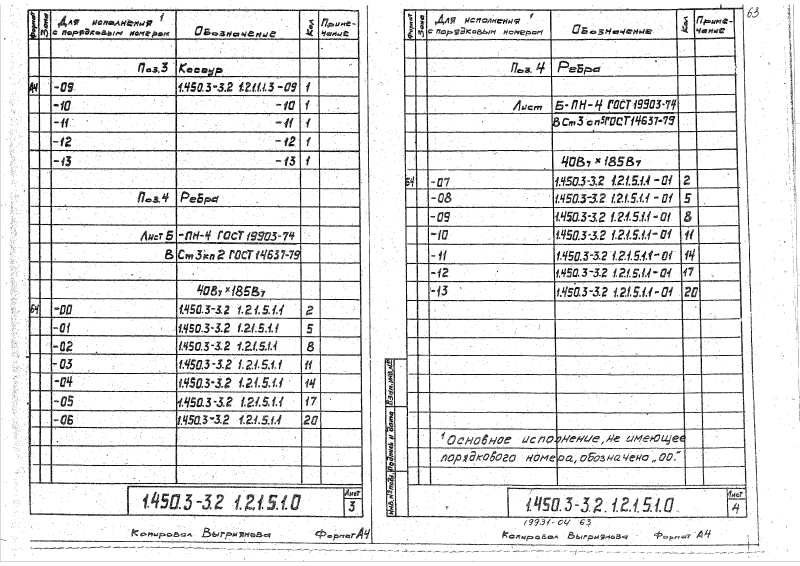 Формат Зона Для исполнения ¹ с порядковым номером Обозначение Кол Примечание
Поз.3 Косоур
А4 -09 1.450.3-3.2 1.2.1.1.1.3 -09 1
-10 -10 1
-11 -11 1
-12 -12 1
-13 -13 1
Поз.4 Ребра
Лист Б -ПН-4 ГОСТ 19903-74
В Ст3кп2 ГОСТ 14637-79
40Вт × 185Вт
б4 -00 1.450.3-3.2 1.2.1.5.1.1 2
-01 1.450.3-3.2 1.2.1.5.1.1 5
-02 1.450.3-3.2 1.2.1.5.1.1 8
-03 1.450.3-3.2 1.2.1.5.1.1 11
-04 1.450.3-3.2 1.2.1.5.1.1 14
-05 1.450.3-3.2 1.2.1.5.1.1 17
-06 1.450.3-3.2 1.2.1.5.1.1 20
1.450.3-3.2 1.2.1.5.1.0 Лист 3
Копировал Выгриянова Формат А4
63
Формат Зона Для исполнения ¹ с порядковым номером Обозначение Кол Примечание
Поз. 4 Ребра
Лист Б-ПН-4 ГОСТ 19903-74
В Ст3 сп5 ГОСТ 14637-79
40Вт × 185Вт
б4 -07 1.450.3-3.2 1.2.1.5.1.1 -01 2
-08 1.450.3-3.2 1.2.1.5.1.1 -01 5
-09 1.450.3-3.2 1.2.1.5.1.1 -01 8
-10 1.450.3-3.2 1.2.1.5.1.1 -01 11
-11 1.450.3-3.2 1.2.1.5.1.1 -01 14
-12 1.450.3-3.2 1.2.1.5.1.1 -01 17
-13 1.450.3-3.2 1.2.1.5.1.1 -01 20
¹ Основное исполнение, не имеющее
порядкового номера, обозначено „00."
Инв.№подл. Подпись и дата Взам.инв.№
1.450.3-3.2. 1.2.1.5.1.0 Лист 4
19931-04 63
Копировал Выгриянова Формат А4